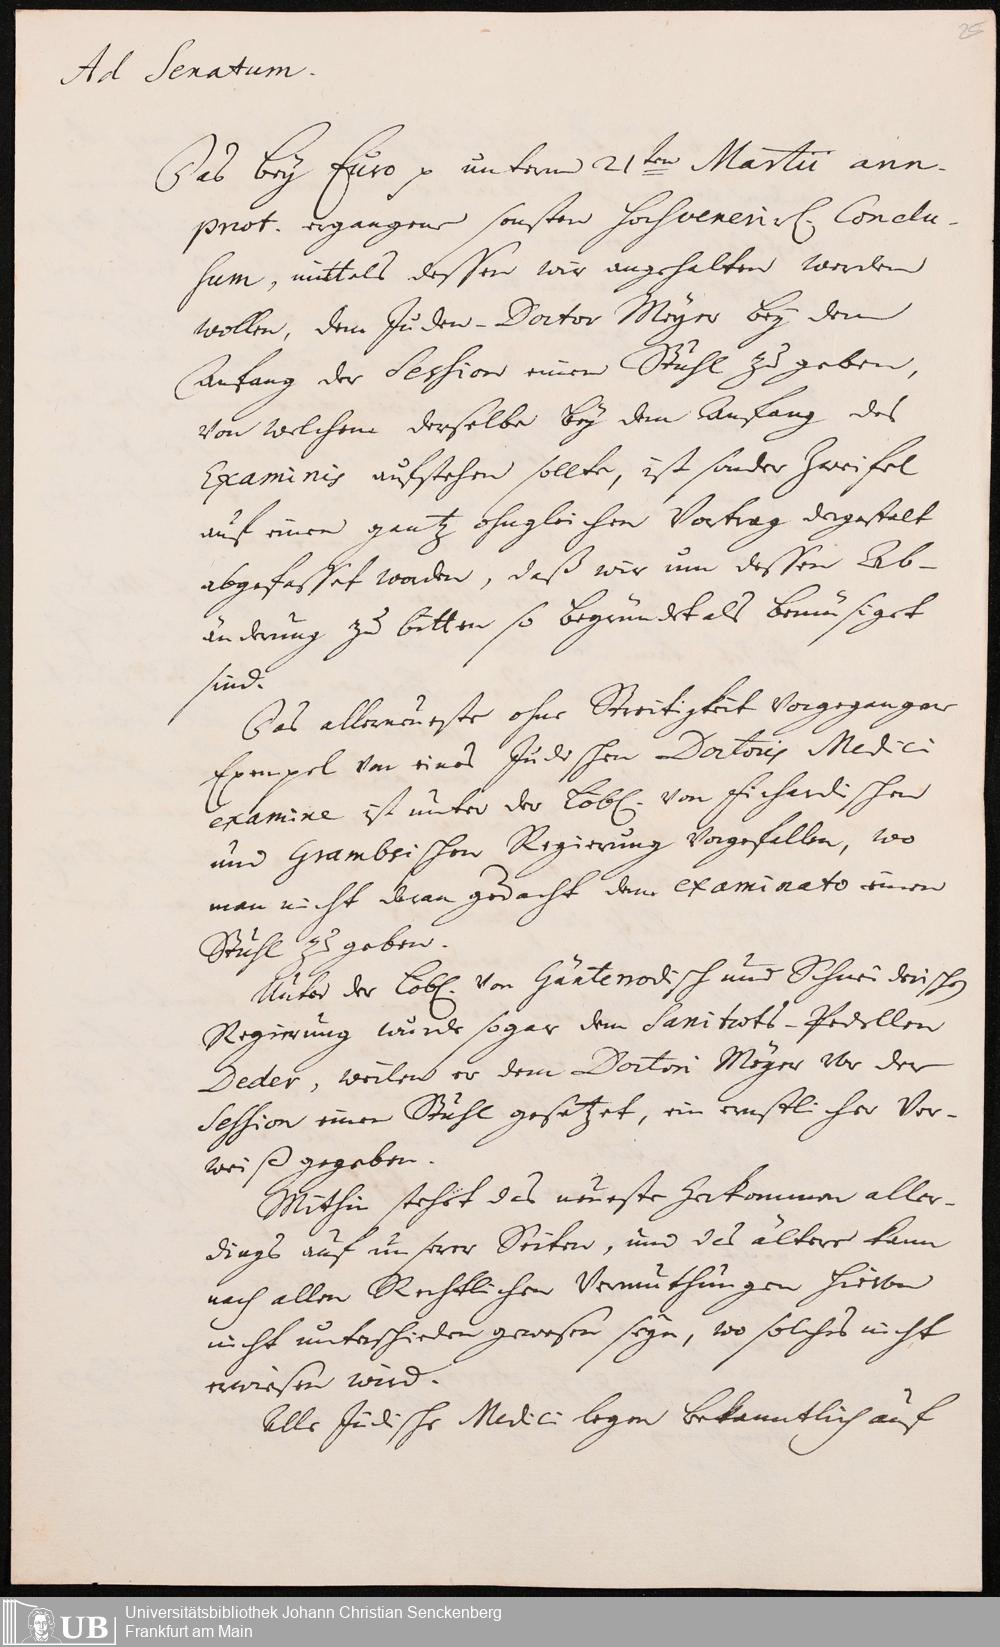 25
Ad Senatum.
Das bey Euro p unterm 21ten Martii ann.
præt. ergangene sonsten hochvenerirl. Conclu-
sum, mittels dessen wir angehalten werden
wollen, dem Juden-Doctor Meyer bey dem
Anfang der Session einen Stuhl zu geben,
von welchem derselbe bey dem Anfang des
Examinis aufstehen sollte, ist sonder Zweifel
auf einen gantz ohngleichen Vortrag dergestalt
abgefasset worden, daß wir um dessen Ab-
änderung zu bitten so begründet als bemüsiget
sind.
Das allerneueste ohne Streitigkeit vorgegangene
Exempel von eines Jüdischen Doctoris Medici
examine ist unter der Löbl. von Fichardischen
und Grambsischen Regierung vorgefallen, wo
man nicht daran gedacht dem examinato einen
Stuhl zu geben.
Unter der Löbl. von Günterrodisch und Schneiderischen
Regierung wurde sogar dem Sanitæts-Pedellen
Deder, weilen er dem Doctori Meyer vor der
Session einen Stuhl gesetzet, ein ernstlicher Ver-
weiß gegeben.
Mithin stehet das neueste Herkommen aller-
dings auf unserer Seiten, und das ältere kann
nach allen Rechtlichen Vermuthungen hievon
nicht unterschieden gewesen seyn, wo solches nicht
erwiesen wird.
Alle Jüdische Medici legen bekanntlich auf
UB
Universitätsbibliothek Johann Christian Senckenberg
Frankfurt am Main